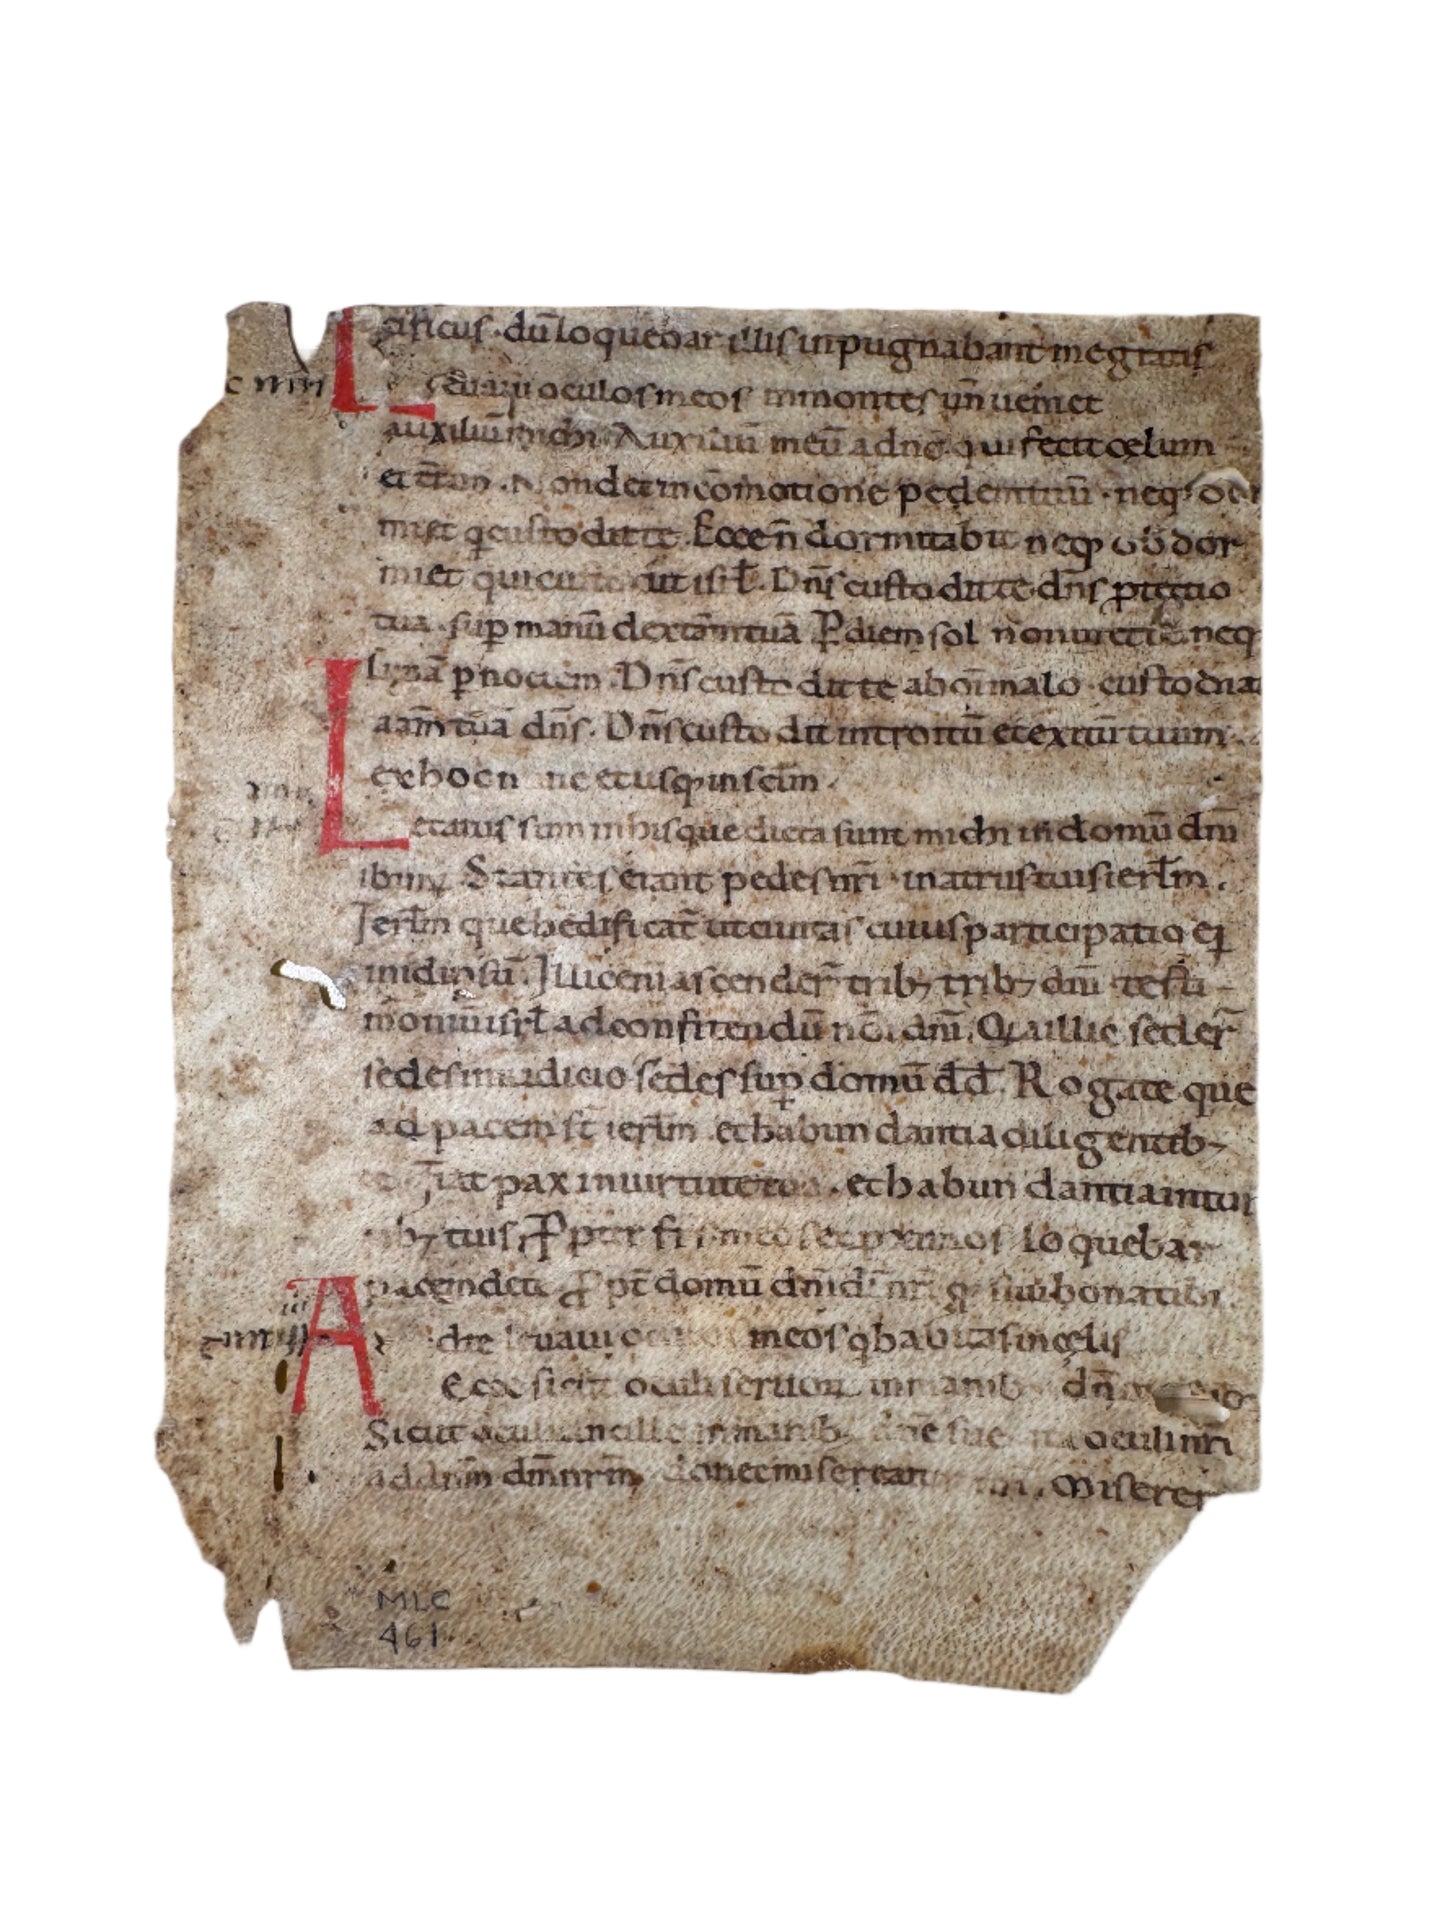 cificus · dū loquebar illis inpugnabant me gratis
L evaui oculos meos in montes un̄ ueniet
auxiliū michi Auxiliū meū a dn̄o qui fecit cęlum
et t̄ram . Non det in cōmotione pedem tuū · neq;
miet q̇ custodit te . Ecce n̄ dormitabit neq; ob dor
miet qui custodit isrł . Dn̄s custodit te dn̄s ptectio
tua · suꝑ manū dextām tuā Ꝑ diem sol non uret te neq;
lunā ꝑ noctem . Dn̄s custodit te ab om̄i malo · custodiat
aām tuā dn̄s . Dn̄s custodit introitū et exitū tuum
ex hoc nunc et usq; in sclm̄ .
L etatus sum in his que dicta sunt michi in domū dn̄i
ibim; Stantes erant pedes nr̄i · in atriis tuis ierłm .
Ierłm que hedificat̄ ut ciuitas cuius participatio ei;
in idipsū . Illic eni ascender̄ trib; trib; dn̄i testi
moniū isrł ad confitendū no . dn̄i . Qa illic seder̄
sedes in iudicio sedes suꝑ domū dd̄ . Rogate que
ad pacem st̄ ierłm et habundantia diligentib;
te Fiat pax in uirtute tua . et habundantia in turi
rib; tuis . Ꝓpter fr̄s meos et pximos loquebar
pacem de te Ꝓpt̄ domū dn̄i dī nr̄i q siui bona tibi .
A d te leuaui oculos meos q habitas in cęlis
Ecce sicut oculi seruor in manib;
Sicut oculi ancille in manib; dn̄e sue ita oculi nr̄i
ad dn̄m dm̄ nr̄m donec misereat nr̄i . Miserer̄
MLC
461